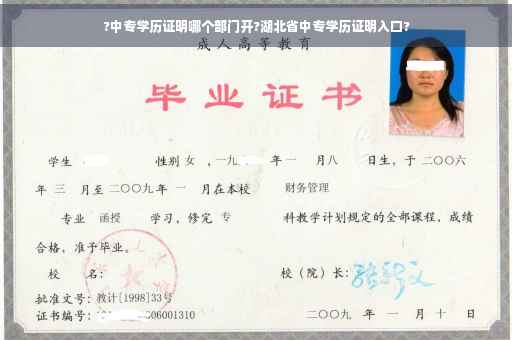 ?中专学历证明哪个部门开?湖北省中专学历证明入口?
成人高等教育
毕业证书
学生 性别 女 ，一九 年 一 月八 日生，于 二〇〇六
年 三 月至 二〇〇九 年 一 月在本校 财务管理
专业 函授 学习，修完 专 科教学计划规定的全部课程，成绩
合格，准予毕业。
校 名： 校（院）长：
批准文号：教计[1998]33号
证书编号： 06001310 二〇〇九 年 一 月 十 日